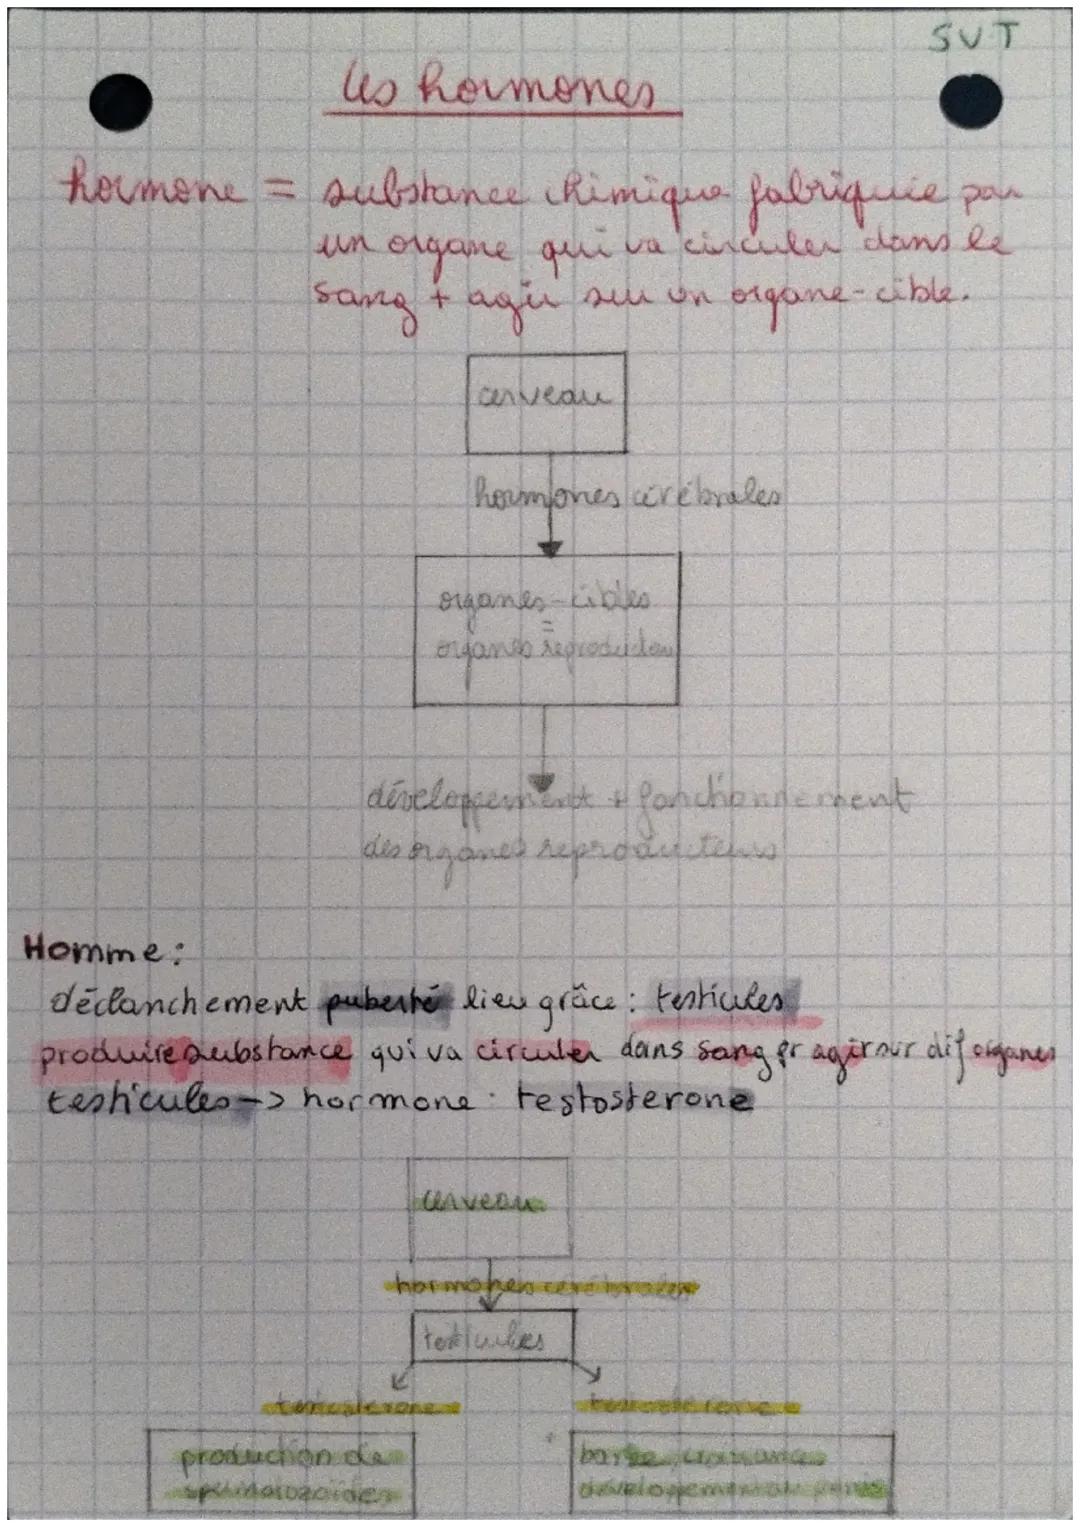 SVT
Les hormones
hormone = substance chimique fabriquée par
un organe qui va circuler dans le
sang + agir sur un organe-cible.
cerveau
hormones cérébrales
organes-cibles
=
organes reproducteu
développement + fonctionnement
des organes reproducteurs
Homme :
déclanchement puberté lieu grâce : testicules
produire substance qui va circuler dans sang pr agir sur dif organes
testicules -> hormone : testosterone
cerveau
hormones cérébrales
testicules
testosterone
production de
spermatozoïdes
barbe, croissance
développement du pénis